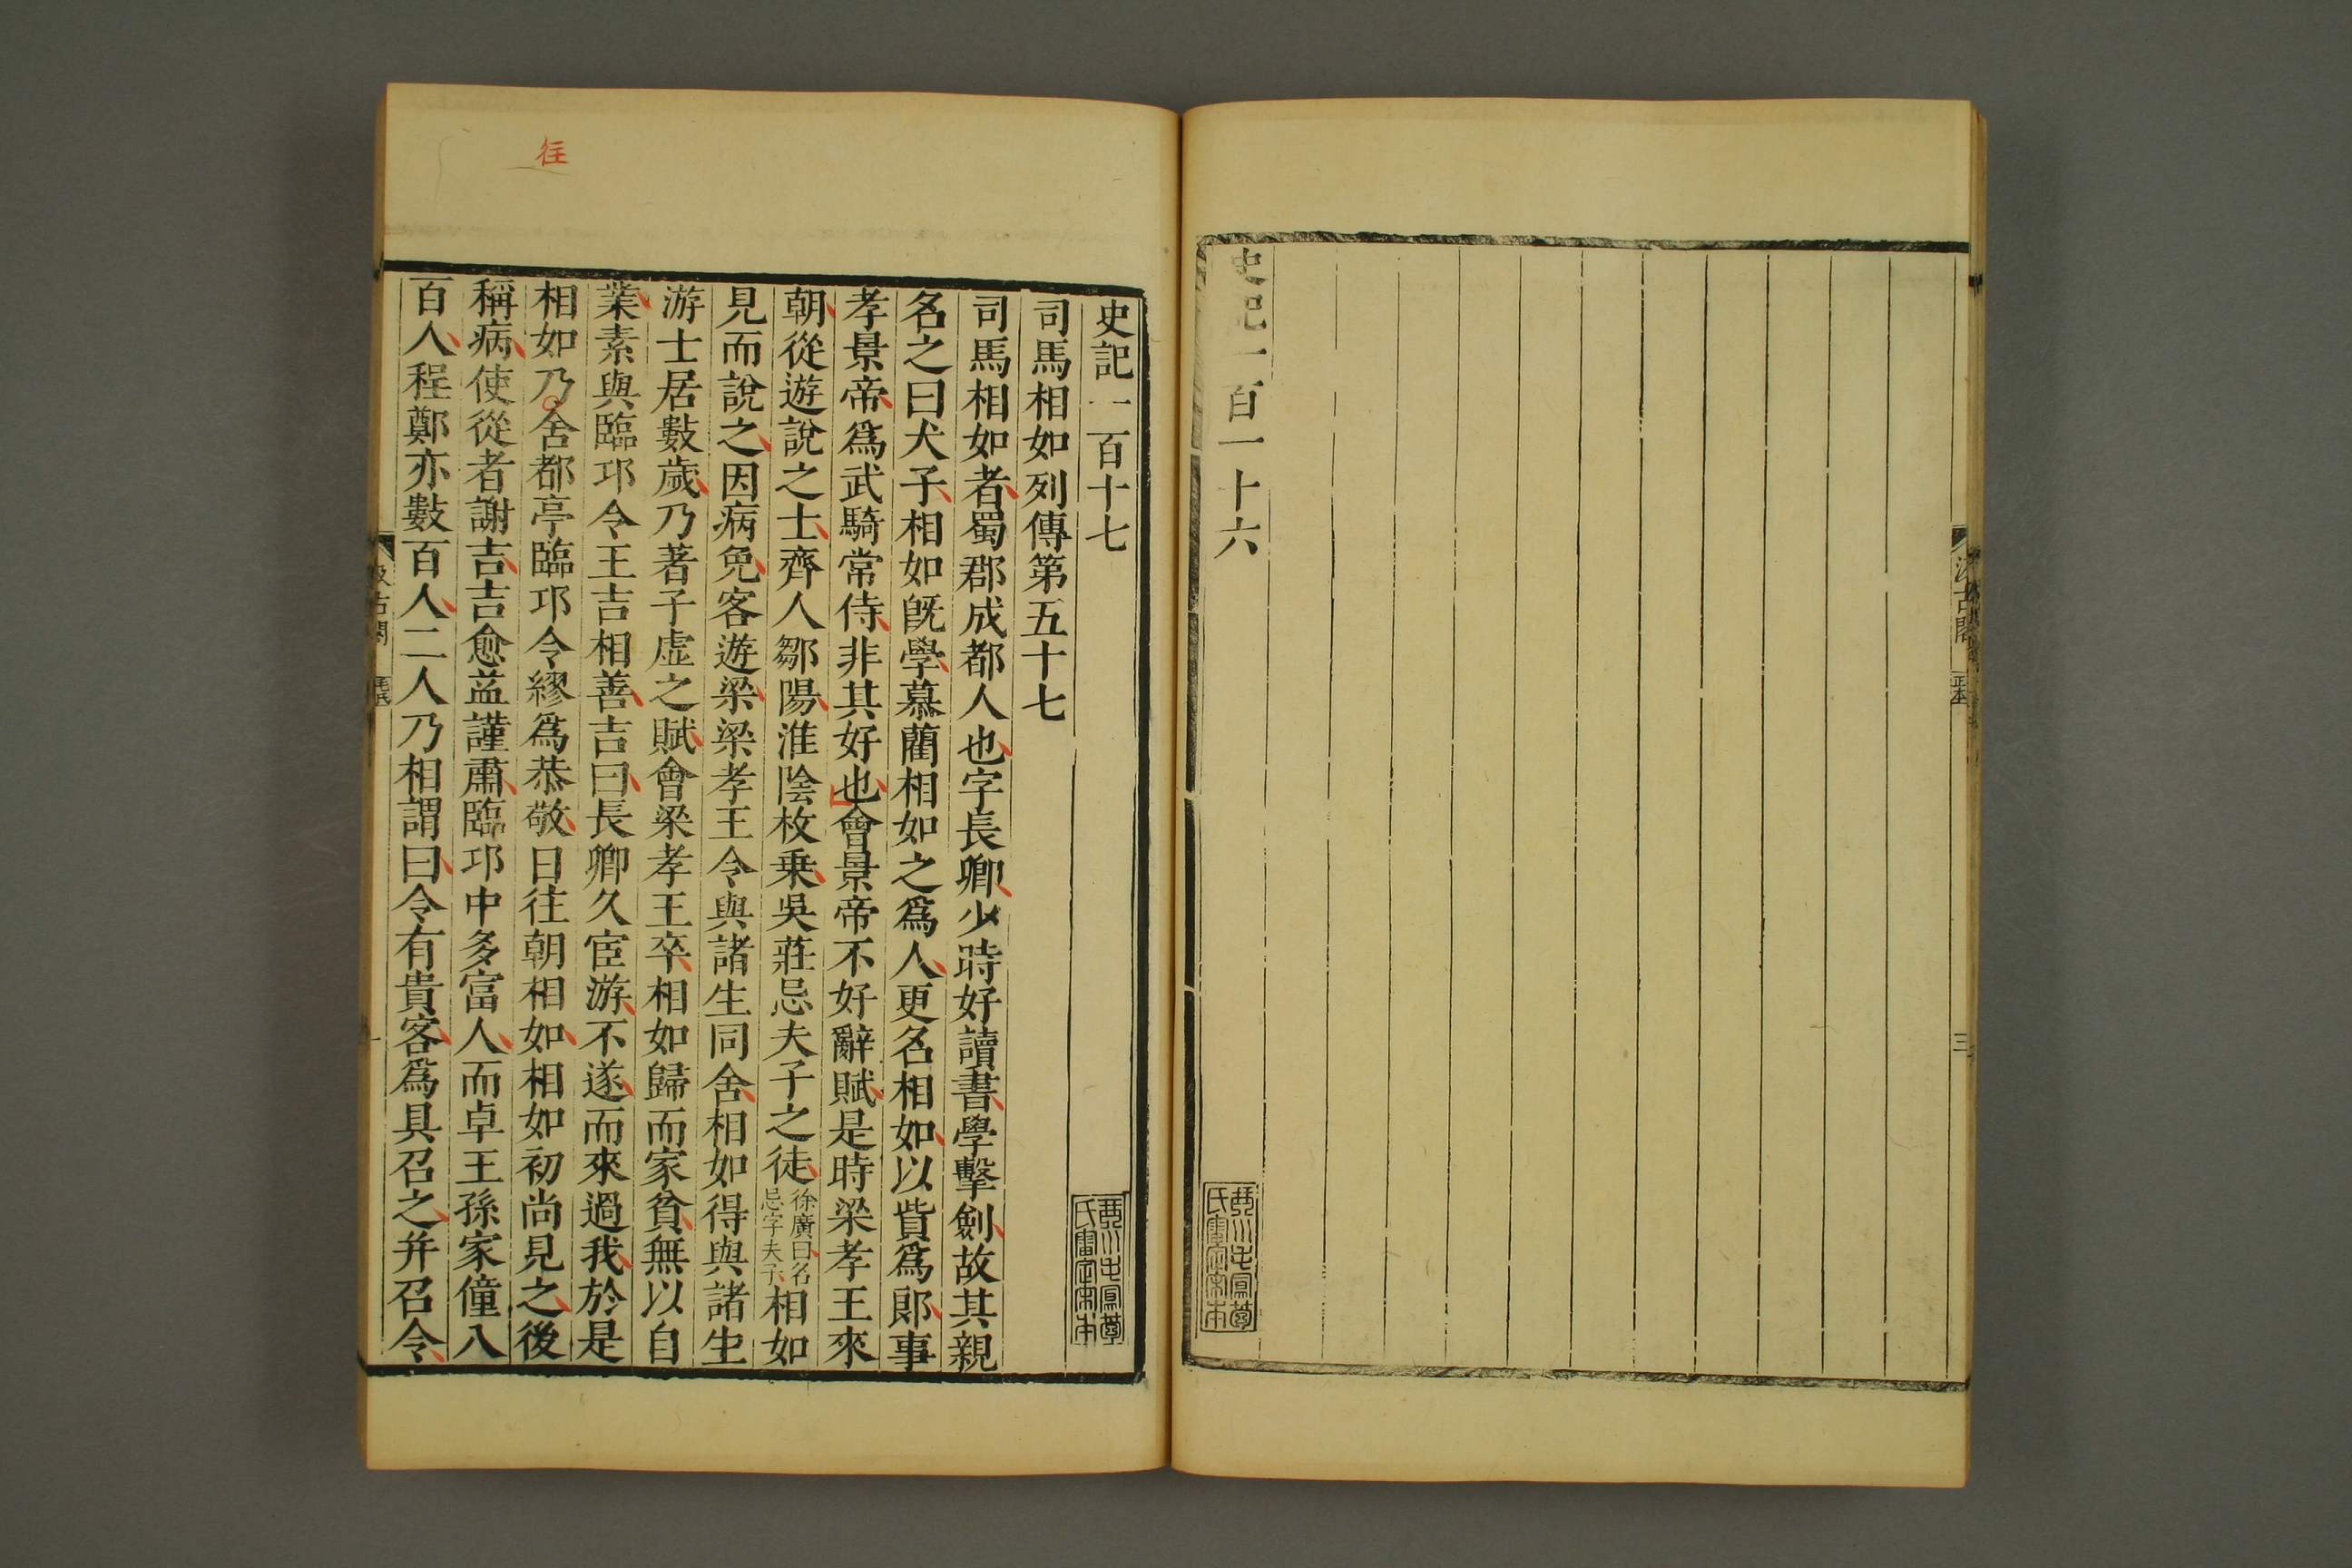 史記一百一十六
史記一百十七
司馬相如列傳第五十七
司馬相如者蜀郡成都人也字長卿少時好讀書學擊劍故其親
名之曰犬子相如既學慕藺相如之爲人更名相如以貲爲郎事
孝景帝爲武騎常侍非其好也會景帝不好辭賦是時梁孝王來
朝從遊說之士齊人鄒陽淮陰枚乗吳莊忌夫子之徒徐廣曰名忌字夫子相如
見而說之因病免客遊梁梁孝王令與諸生同舍相如得與諸生
游士居數歲乃著子虛之賦會梁孝王卒相如歸而家貧無以自
業素與臨邛令王吉相善吉曰長卿久宦游不遂而來過我於是
相如乃舍都亭臨邛令繆爲恭敬日往朝相如相如初尚見之後
稱病使從者謝吉吉愈益謹肅臨邛中多富人而卓王孫家僮八
百人程鄭亦數百人二人乃相謂曰令有貴客爲具召之并召令
往
汲古閣
毛氏
三
一